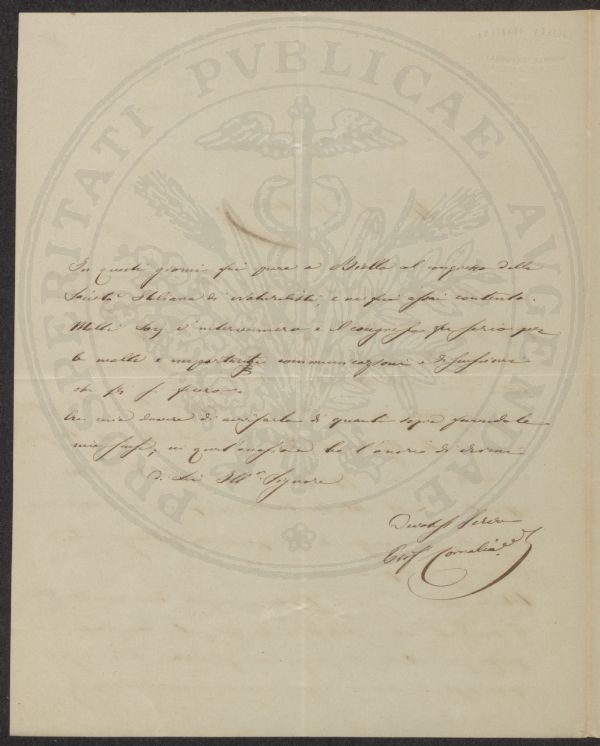 PROSPERITATI PVBLICAE AVGENDAE
In questi giorni fui pure a Biella al congresso della
Società Italiana di Naturalisti, e ne fui assai contento.
Molti Socj v'intervennero e il congresso fu serio per
le molte e importanti communicazioni e discussioni
che si fecero.
Era mio dovere di avvisarla di quanto sopra facendole
mie scuse, in quest'occasione ho l'onore di dirmi
di Lei Ill.º Signore
Devotiss Servo
Prof. Cornalia